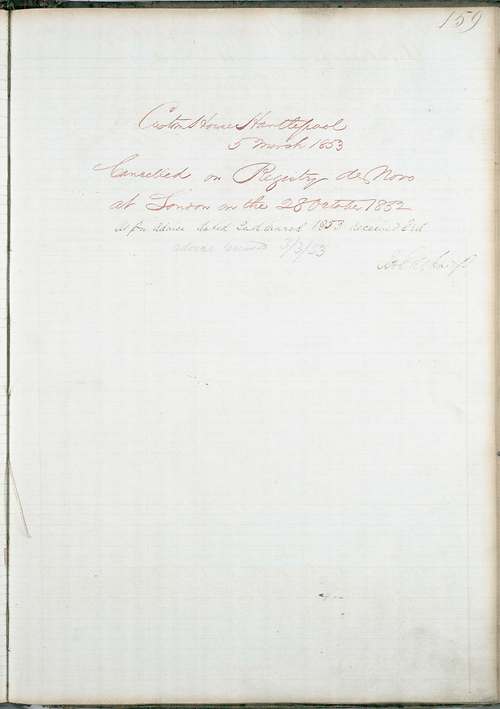 159
Custom House Hartlepool
5 March 1853
Cancelled on Registry de Novo
at London on the 28 October 1852
As per advice dated 2nd March 1853 received 3rd
advice received 5/3/53